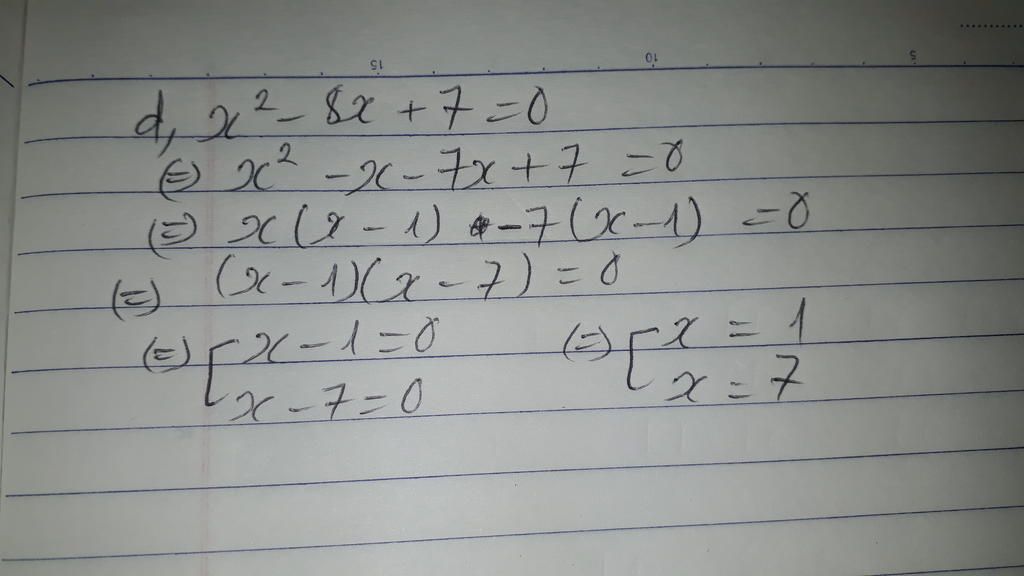 15 10 5
d, x² - 8x + 7 = 0
(=) x² - x - 7x + 7 = 0
(=) x(x - 1) - 7(x - 1) = 0
(=) (x - 1)(x - 7) = 0
(=) [ x - 1 = 0 (=) [ x = 1
x - 7 = 0 x = 7